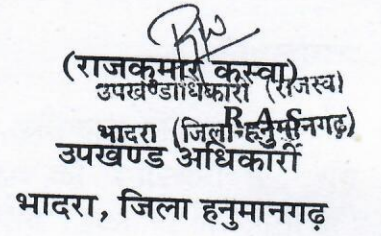 (राजकुमार कस्वा)
उपखण्डाधिकारी (राजस्व)
R.A.S.
भादरा (जिला-हनुमानगढ़)
उपखण्ड अधिकारी
भादरा, जिला हनुमानगढ़